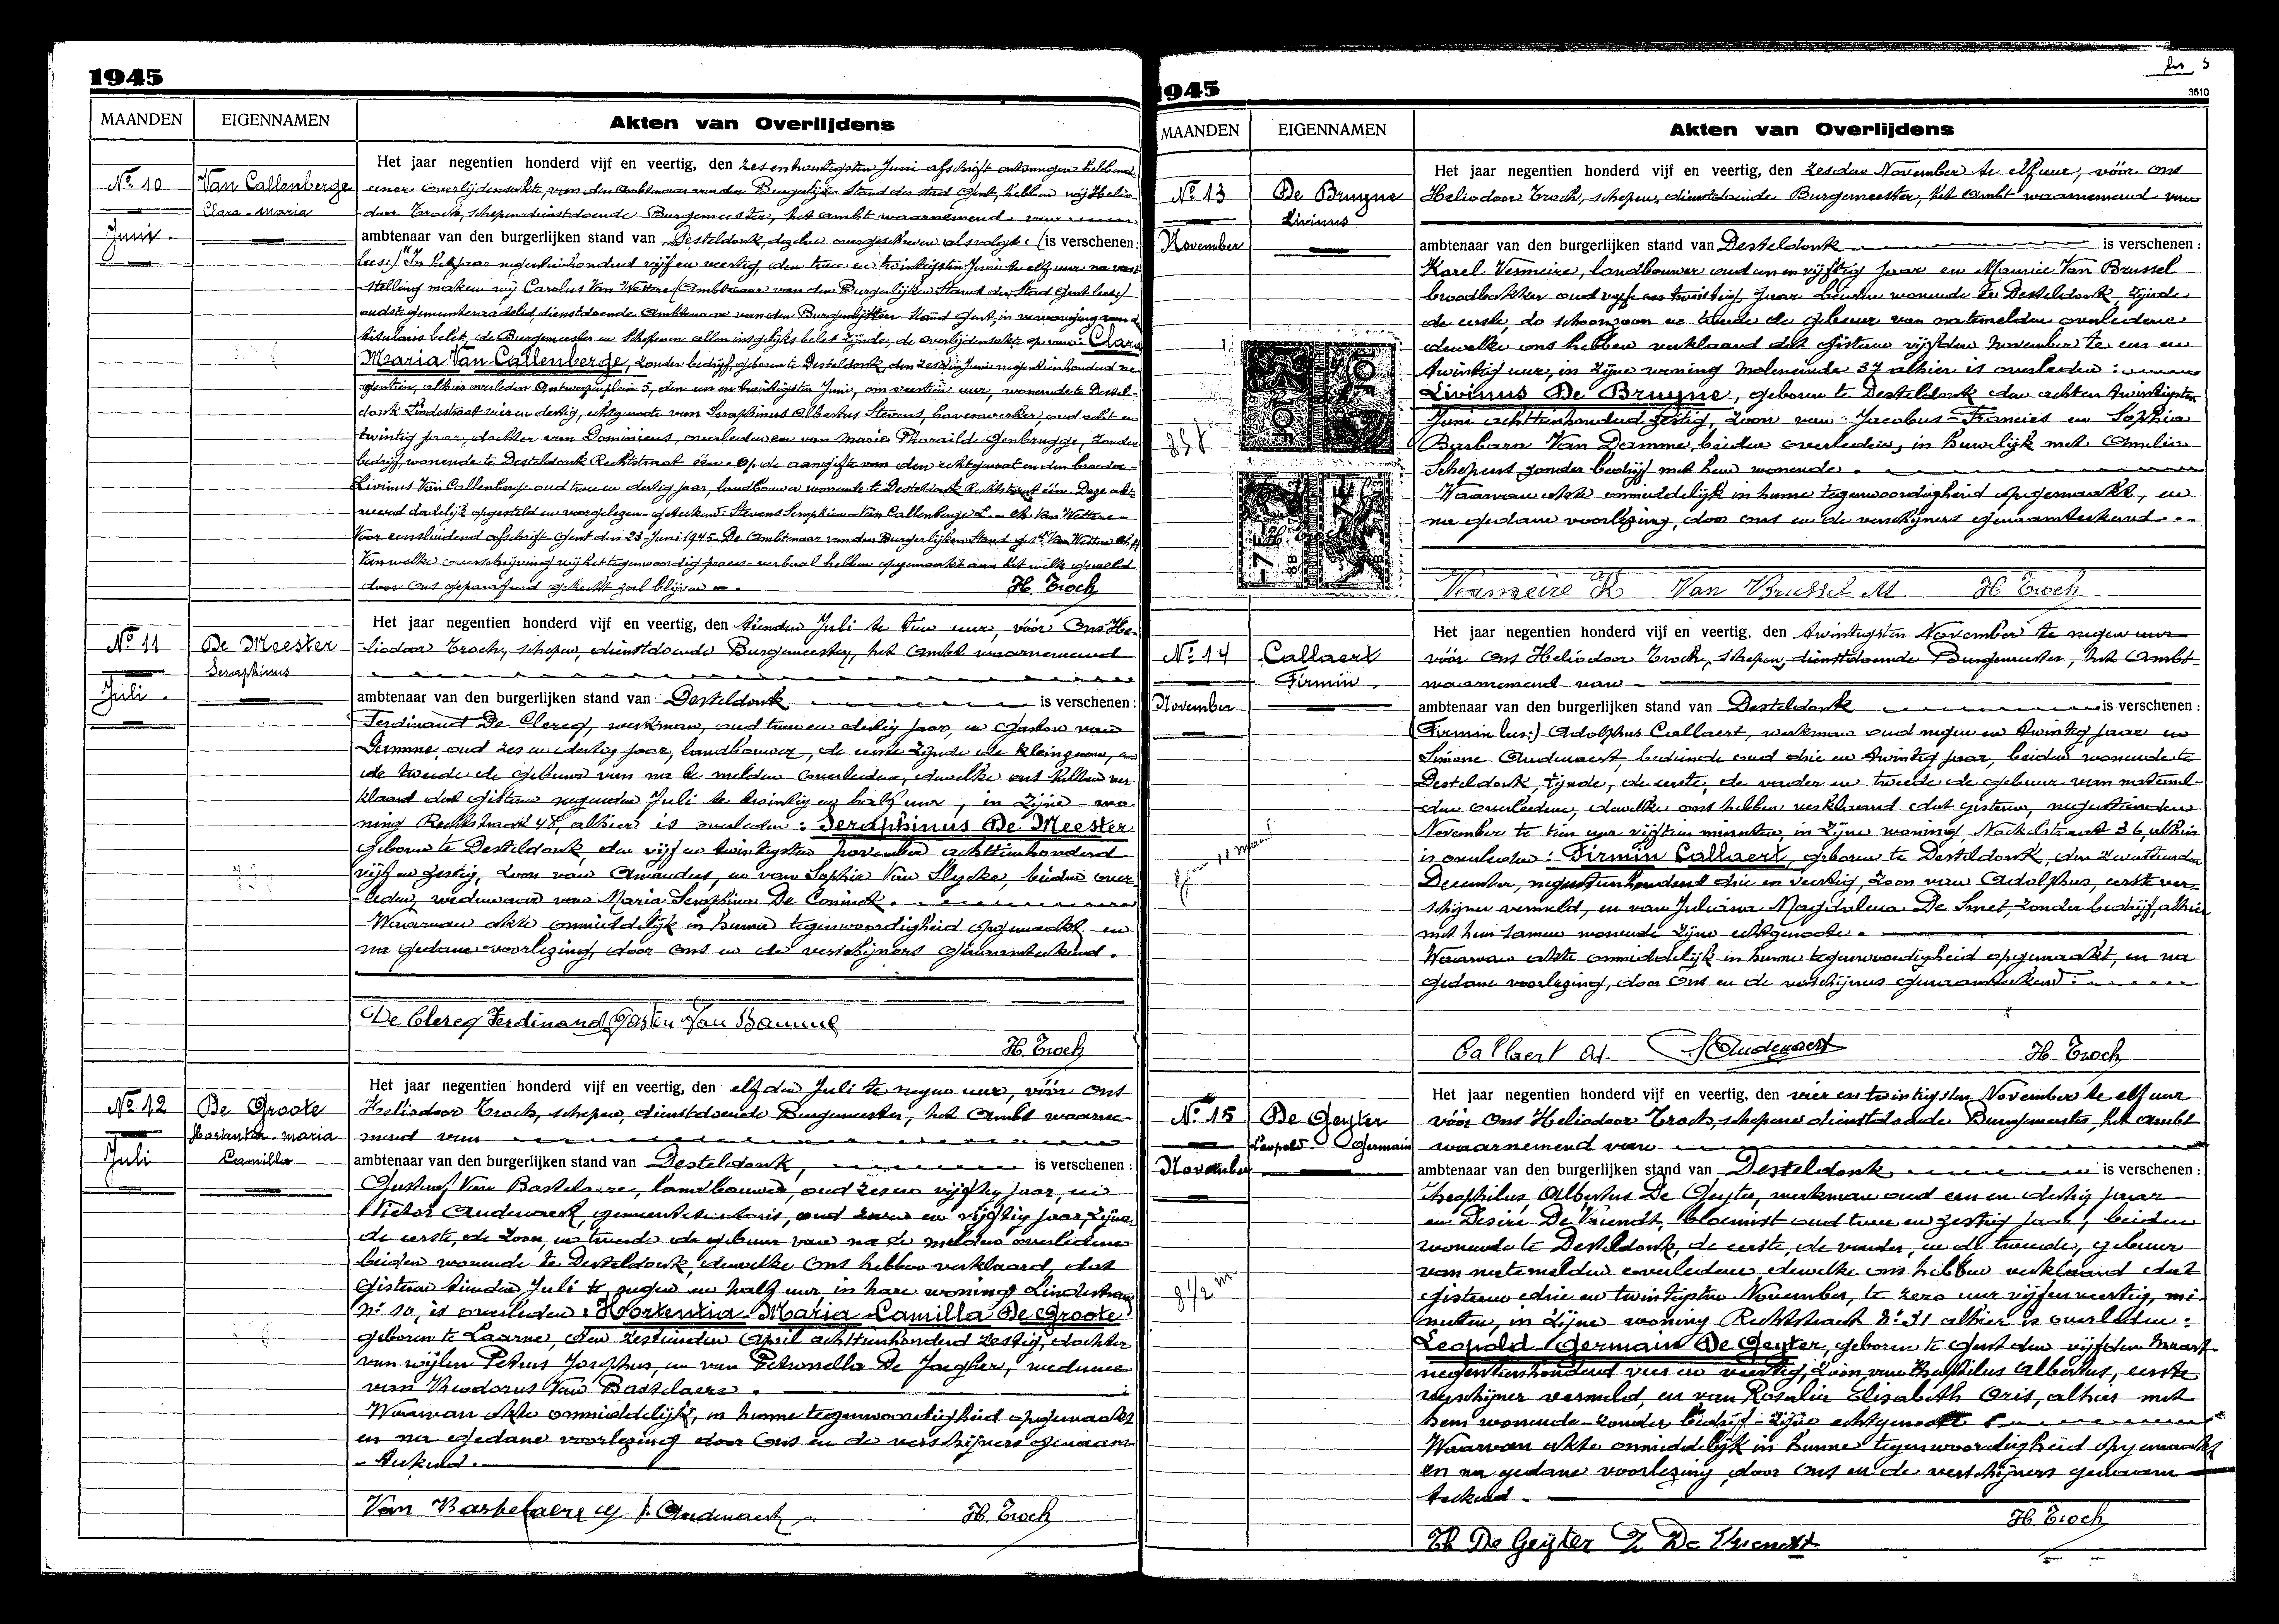 1945
MAANDEN
EIGENNAMEN
Akten van Overlijdens
Nº 10
Van Callenberge
Clara-Maria
Juni.
Het jaar negentien honderd vijf en veertig, den zes en twintigsten Juni afschrift ontvangen hebbend
eener overlijdensakte, van den Ambtenaar van den Burgerlijke Stand der stad Gent, hebben wij Helio-
door Troch, schepen dienstdoende Burgemeester, het ambt waarnemend van
ambtenaar van den burgerlijken stand van Desteldonk, dezelve overgeschreven alsvolgt: (is verschenen:
lees:) "In het jaar negentienhonderd vijf en veertig, den twee en twintigsten Juni te elf uur na vast-
stelling maken wij Carolus Van Wettere (Ambtenaar van den Burgerlijken Stand der Stad Gent lees:)
oudste gemeenteraadslid, dienstdoende Ambtenaar van den Burgerlijken Stand Gent, in vervanging van d
titularis belet, de Burgemeester en Schepenen allen insgelijks belet zijnde, de overlijdensakte op van: Clara
Maria Van Callenberge, zonder bedrijf, geboren te Desteldonk, den zesden Juni negentienhonderd ne-
gentien, alhier overleden Antwerpenplein 5, den een en twintigsten Juni, om veertien uur, wonende te Destel-
donk Lindestraat vier en dertig, echtgenoote van Seraphinus Albertus Stevens, havenwerker, oud acht en
twintig jaar, dochter van Dominicus, overleden en van Marie Pharaïlde Genbrugge, zonder
bedrijf, wonende te Desteldonk Rechtstraat één. Op de aangifte van den echtgenoot en den broeder
Livinus Van Callenberge oud twee en dertig jaar, landbouwer wonende te Desteldonk Rechtstraat één. Deze akte
werd dadelijk opgesteld en voorgelezen - geteekend: Stevens Seraphien - Van Callenberge L. - Ch. Van Wettere -
Voor eensluidend afschrift Gent den 23 Juni 1945. De Ambtenaar van den Burgerlijken Stand get. Van Wettere Ch."
Van welke overschrijving wij het tegenwoordig proces-verbaal hebben opgemaakt aan het welk gemeld
door ons geparafeerd gehecht zal blijven.
H. Troch
Nº 11
De Meester
Seraphinus
Juli.
Het jaar negentien honderd vijf en veertig, den tienden Juli te tien uur, vóór Ons He-
liodoor Troch, schepen, dienstdoende Burgemeester, het Ambt waarnemend
ambtenaar van den burgerlijken stand van Desteldonk is verschenen:
Ferdinand De Clercq, werkman, oud twee en dertig jaar, en Gaston van
Damme, oud zes en dertig jaar, landbouwer, de eerste zijnde de kleinzoon, en
de tweede de gebuur van na te melden overledene, dewelke ons hebben ver-
klaard dat gisteren negenden Juli te twintig en half uur, in zijne wo-
ning Rechtstraat 48, alhier is overleden: Seraphinus De Meester
geboren te Desteldonk, den vijf en twintigsten november achttienhonderd
vijf en zestig, zoon van Amandus, en van Sophie Van Slycke, beiden over-
leden, weduwaar van Maria Seraphina De Coninck.
Waarvan akte onmiddelijk in hunne tegenwoordigheid opgemaakt en
na gedane voorlezing, door Ons en de verschijners genaamteekend.
De Clercq Ferdinand Gaston Van Damme
H. Troch
Nº 12
De Groote
Hortentia-Maria
Camilla
Juli
Het jaar negentien honderd vijf en veertig, den elfden Juli te negen uur, vóór Ons
Heliodoor Troch, schepen, dienstdoende Burgemeester, het Ambt waarne-
mend van
ambtenaar van den burgerlijken stand van Desteldonk, is verschenen:
Gustaaf Van Bastelaere, landbouwer, oud zes en vijftig jaar, en
Victor Audenaert, gemeentesecretaris, oud en vijftig jaar, zijnde
de eerste, de zoon, en tweede de gebuur van na te melden overledene
beiden wonende te Desteldonk, dewelke Ons hebben verklaard, dat
gisteren tienden Juli te negen en half uur, in hare woning Lindestraat
nº 10, is overleden: Hortentia-Maria-Camilla De Groote
geboren te Laarne, den zestienden April achttienhonderd zestig, dochter
van wijlen Petrus Josephus, en van Petronella De Jaegher, weduwe
van Theodorus Van Bastelaere.
Waarvan akte onmiddelijk, in hunne tegenwoordigheid opgemaakt
en na gedane voorlezing door Ons en de verschijners genaam-
teekend.
Van Bastelaere G V. Audenaert
H. Troch
1945
3610
MAANDEN
EIGENNAMEN
Akten van Overlijdens
Nº 13
De Bruyne
Livinus
November
85 j
Het jaar negentien honderd vijf en veertig, den zesden November te elf uur, vóór Ons
Heliodoor Troch, schepen, dienstdoende Burgemeester, het Ambt waarnemend van
ambtenaar van den burgerlijken stand van Desteldonk is verschenen:
Karel Vermeire, landbouwer oud een en vijftig jaar en Maurice Van Brussel
broodbakker oud vijf en twintig jaar beiden wonende te Desteldonk, zijnde
de eerste, de schoonzoon en tweede de gebuur van natemelden overledene
dewelke ons hebben verklaard dat gisteren vijfden november te een en
twintig uur, in zijne woning Moleneinde 37 alhier is overleden:
Livinus De Bruyne, geboren te Desteldonk den achten twintigsten
Juni achttienhonderd zestig, zoon van Jacobus-Francies en Sophia
Barbara Van Damme, beiden overleden, in huwelijk met Amelia
Schepens zonder bedrijf met hem wonende.
Waarvan akte onmiddelijk in hunne tegenwoordigheid opgemaakt, en
na gedane voorlezing, door ons en de verschijners genaamteekend.
Vermeire K Van Brussel M. H. Troch
Nº 14
Callaert
Firmin.
November
1 jaar 11 maand
Het jaar negentien honderd vijf en veertig, den twintigsten November te negen uur
vóór Ons Heliodoor Troch, schepen, dienstdoende Burgemeester, het Ambt-
waarnemend van
ambtenaar van den burgerlijken stand van Desteldonk is verschenen:
(Firmin lees:) Adolphus Callaert, werkman oud negen en twintig jaar en
Simone Audenaert, bediende oud drie en twintig jaar, beiden wonende te
Desteldonk, zijnde, de eerste, de vader en tweede de gebuur van natemel-
den overledene, dewelke ons hebben verklaard dat gisteren, negentienden
November te tien uur vijftien minuten, in zijne woning Nockelstraat 36, alhier
is overleden: Firmin Callaert, geboren te Desteldonk, den zeventienden
December, negentienhonderd drie en veertig, zoon van Adolphus, eerste ver-
schijner vermeld, en van Juliana Magdalena De Smet, zonder bedrijf, alhier
met hem samen wonende zijne echtgenoote.
Waarvan akte onmiddelijk in hunne tegenwoordigheid opgemaakt, en na
gedane voorlezing, door Ons en de verschijners genaamteekend.
Callaert Ad. S Audenaert H. Troch
Nº 15
De Geyter
Leopold Germain
November
8 1/2 m
Het jaar negentien honderd vijf en veertig, den vier en twintigsten November te elf uur
vóór Ons Heliodoor Troch, schepen dienstdoende Burgemeester, het Ambt
waarnemend van
ambtenaar van den burgerlijken stand van Desteldonk is verschenen:
Theophilus Albertus De Geyter, werkman oud een en dertig jaar
en Desiré De Vriendt, bloemist oud twee en zestig jaar, beiden
wonende te Desteldonk, de eerste, de vader, en de tweede, gebuur
van natemelden overledene dewelke ons hebben verklaard dat
gisteren drie en twintigsten November, te zero uur vijfenveertig, mi-
nuten, in zijne woning Rechtstraat Nº 31 alhier is overleden:
Leopold Germain De Geyter, geboren te Gent den vijfden Maart
negentienhonderd vier en veertig, zoon van Theophilus Albertus, eerste
verschijner vermeld, en van Rosalia Elisabeth Oris, alhier met
hem wonende-zonder bedrijf-zijne echtgenoote
Waarvan akte onmiddelijk in hunne tegenwoordigheid opgemaakt
en na gedane voorlezing, door Ons en de verschijners genaam-
teekend.
H. Troch
Th De Geyter D. De Vriendt